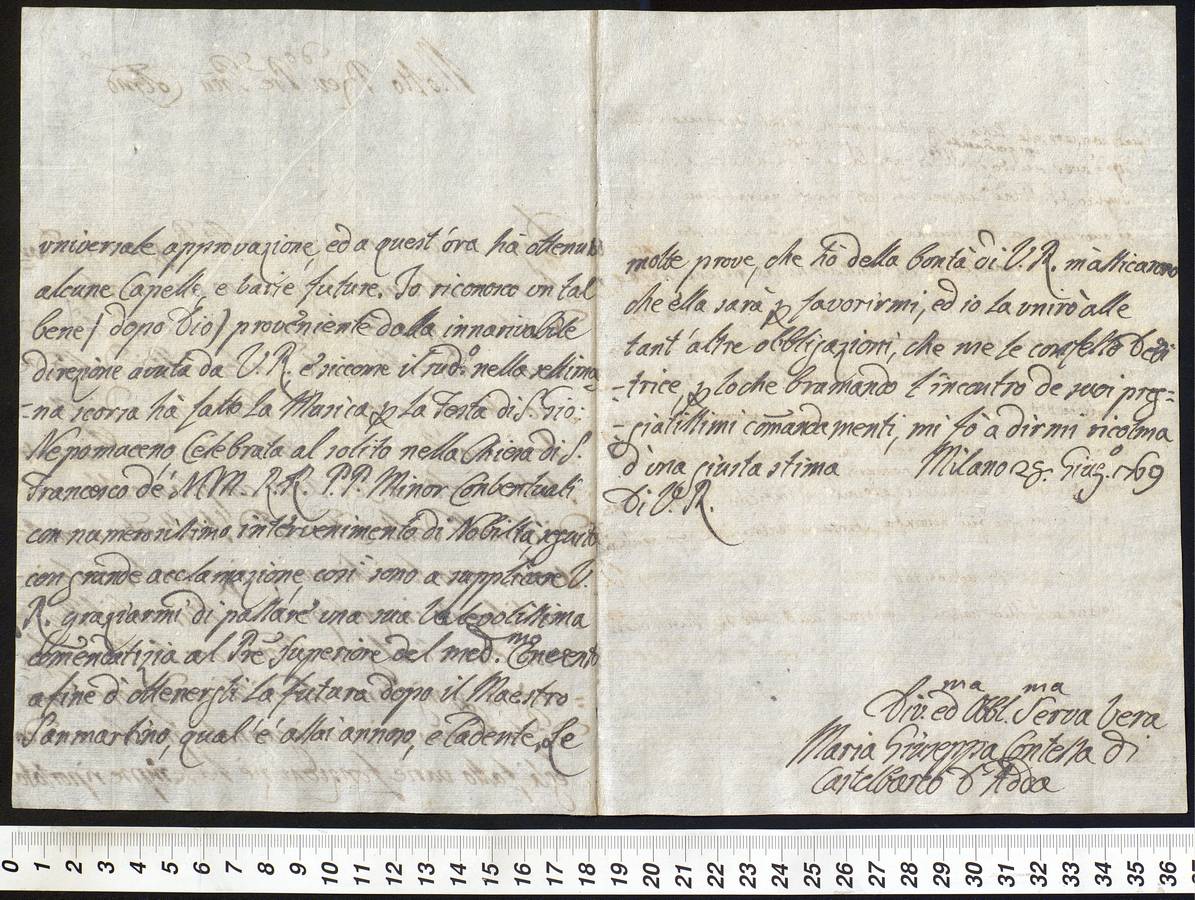 universale approvazione, ed a quest'ora hà ottenuto
alcune Capelle, e varie future. Io riconosco un tal
bene (dopo Dio) proveniente dalla innarivabile
direzione avuta da V. R. e siccome il sud.o nella settima=
=na scorsa hà fatto la Musica p la Festa di S. Gio:
Nepomaceno Celebrata al solito nella Chiesa di S.
Francesco de' M. M. R. R. P. P. Minor Conventuali
con numerosissimo intervenimento di Nobiltà, seguito
con grande acclamazione, così sono a supplicare V.
R. graziarmi di passare una sua valevolissima
comendatizia al Pre Superiore del med.mo Convento
a fine d'ottenergli la futura dopo il Maestro
Sanmartino, qual'é assai annoso, e Cadente. Le
molte prove, che hò della bontà di V. R. m'assicurano
che ella sarà p favorirmi, ed io la unirò alle
tant'altre obbligazioni, che me le confesso Debi
=trice, p loche bramando l'incontro de suoi preg=
=giatissimi comandamenti, mi fò a dirmi ricolma
d'una giusta stima Milano 28. Giug.o 1769
Di V. R.
Div.ma ed Obbl.ma Serva Vera
Maria Giuseppa Contessa di
Castelbarco D'Adda
0 1 2 3 4 5 6 7 8 9 10 11 12 13 14 15 16 17 18 19 20 21 22 23 24 25 26 27 28 29 30 31 32 33 34 35 36